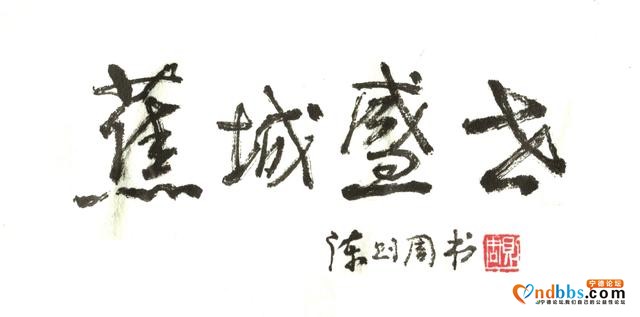 蕉城盛世
陈则周书
则周
宁德论坛
ndbbs.com
宁德论坛,我们自己的公益性论坛